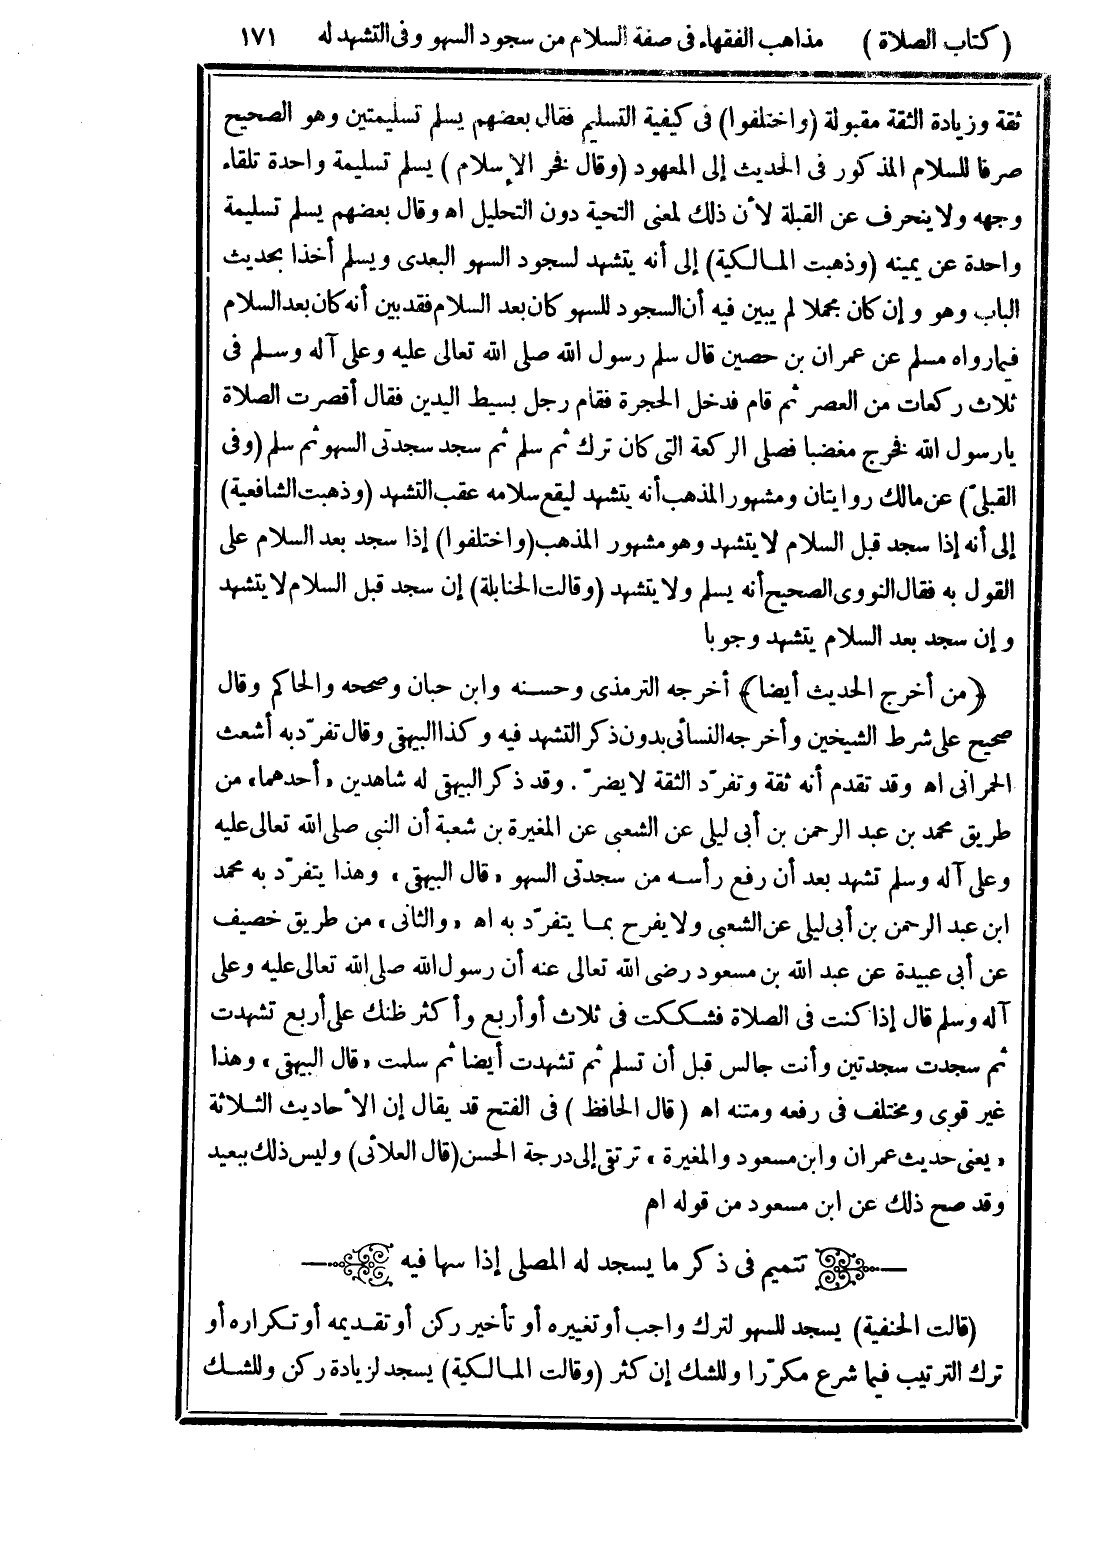 (كتاب الصلاة) مذاهب الفقهاء فى صفة السلام من سجود السهو وفى التشهد له ١٧١
ثقة وزيادة الثقة مقبولة (واختلفوا) فى كيفية التسليم فقال بعضهم يسلم تسليمتين وهو الصحيح
صرفا للسلام المذكور فى الحديث إلى المعهود (وقال فخر الإسلام) يسلم تسليمة واحدة تلقاء
وجهه ولا ينحرف عن القبلة لأن ذلك لمعنى التحية دون التحليل اه وقال بعضهم يسلم تسليمة
واحدة عن يمينه (وذهبت المالكية) إلى أنه يتشهد لسجود السهو البعدى ويسلم أخذا بحديث
الباب وهو وإن كان مجملا لم يبين فيه أن السجود للسهو كان بعد السلام فقد بين أنه كان بعد السلام
فيما رواه مسلم عن عمران بن حصين قال سلم رسول الله صلى الله تعالى عليه وعلى آله وسلم فى
ثلاث ركعات من العصر ثم قام فدخل الحجرة فقام رجل بسيط اليدين فقال أقصرت الصلاة
يا رسول الله فخرج مغضبا فصلى الركعة التى كان ترك ثم سلم ثم سجد سجدتى السهو ثم سلم (وفى
القبلىّ) عن مالك روايتان ومشهور المذهب أنه يتشهد ليقع سلامه عقب التشهد (وذهبت الشافعية)
إلى أنه إذا سجد قبل السلام لا يتشهد وهو مشهور المذهب (واختلفوا) إذا سجد بعد السلام على
القول به فقال النووى الصحيح أنه يسلم ولا يتشهد (وقالت الحنابلة) إن سجد قبل السلام لا يتشهد
وإن سجد بعد السلام يتشهد وجوبا
﴿من أخرج الحديث أيضا﴾ أخرجه الترمذى وحسنه وابن حبان وصححه والحاكم وقال
صحيح على شرط الشيخين وأخرجه النسائى بدون ذكر التشهد فيه وكذا البيهقى وقال تفرّد به أشعث
الحمرانى اه وقد تقدم أنه ثقة وتفرّد الثقة لا يضرّ. وقد ذكر البيهقى له شاهدين «أحدهما» من
طريق محمد بن عبد الرحمن بن أبى ليلى عن الشعبى عن المغيرة بن شعبة أن النبى صلى الله تعالى عليه
وعلى آله وسلم تشهد بعد أن رفع رأسه من سجدتى السهو «قال البيهقى» وهذا يتفرّد به محمد
ابن عبد الرحمن بن أبى ليلى عن الشعبى ولا يفرح بما يتفرّد به اه «والثانى» من طريق خصيف
عن أبى عبيدة عن عبد الله بن مسعود رضى الله تعالى عنه أن رسول الله صلى الله تعالى عليه وعلى
آله وسلم قال إذا كنت فى الصلاة فشككت فى ثلاث أو أربع وأكثر ظنك على أربع تشهدت
ثم سجدت سجدتين وأنت جالس قبل أن تسلم ثم تشهدت أيضا ثم سلمت «قال البيهقى» وهذا
غير قوى ومختلف فى رفعه ومتنه اه (قال الحافظ) فى الفتح قد يقال إن الأحاديث الثلاثة
«يعنى حديث عمران وابن مسعود والمغيرة» ترتقى إلى درجة الحسن (قال العلائى) وليس ذلك ببعيد
وقد صح ذلك عن ابن مسعود من قوله اه
تتميم فى ذكر ما يسجد له المصلى إذا سها فيه
(قالت الحنفية) يسجد للسهو لترك واجب أو تغييره أو تأخير ركن أو تقديمه أو تكراره أو
ترك الترتيب فيما شرع مكرّرا وللشك إن كثر (وقالت المالكية) يسجد لزيادة ركن وللشك